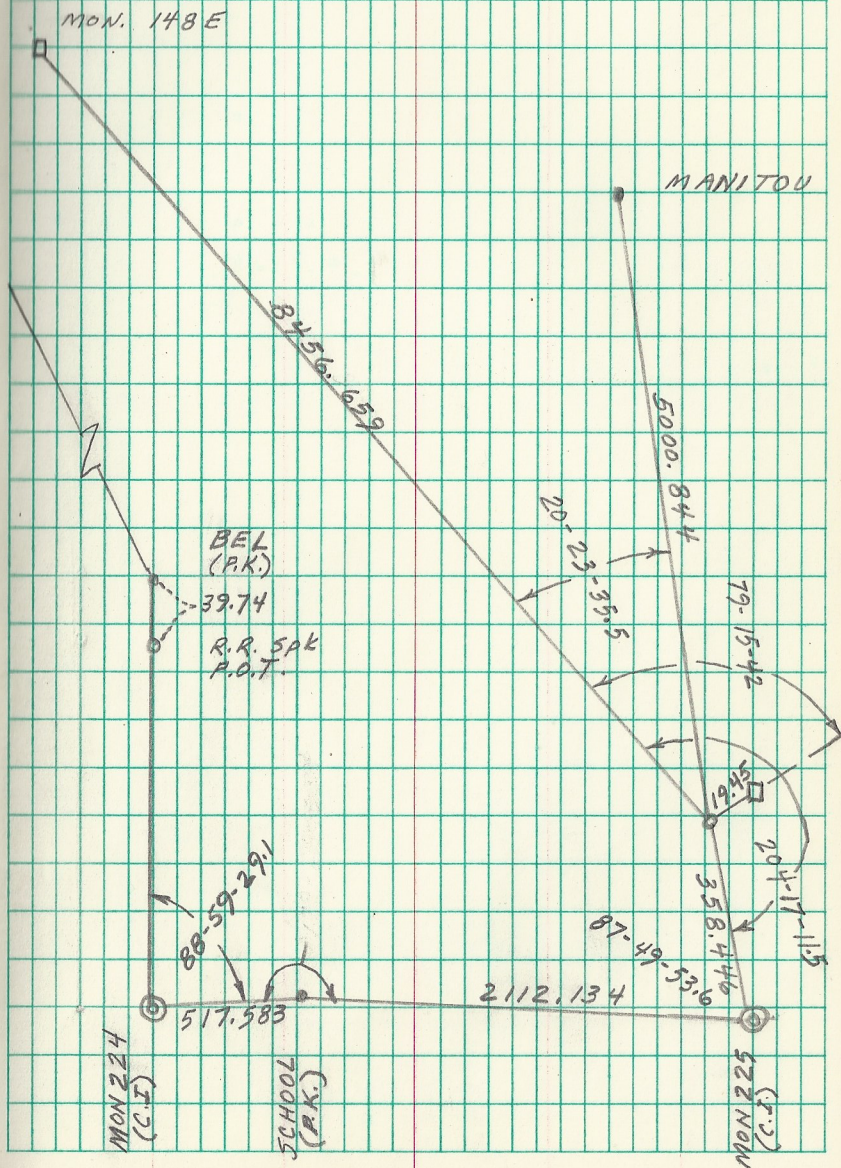 MON. 148E
MANITOU
8456.659
5000.844
20-23-35.5
79-15-42
BEL
(P.K.)
39.74
R.R. SPK
P.O.T.
19.45
204-17-11.5
358.446
87-49-53.6
88-59-29.1
517.583
2112.134
MON 224
(C.I)
SCHOOL
(P.K.)
MON 225
(C.I.)